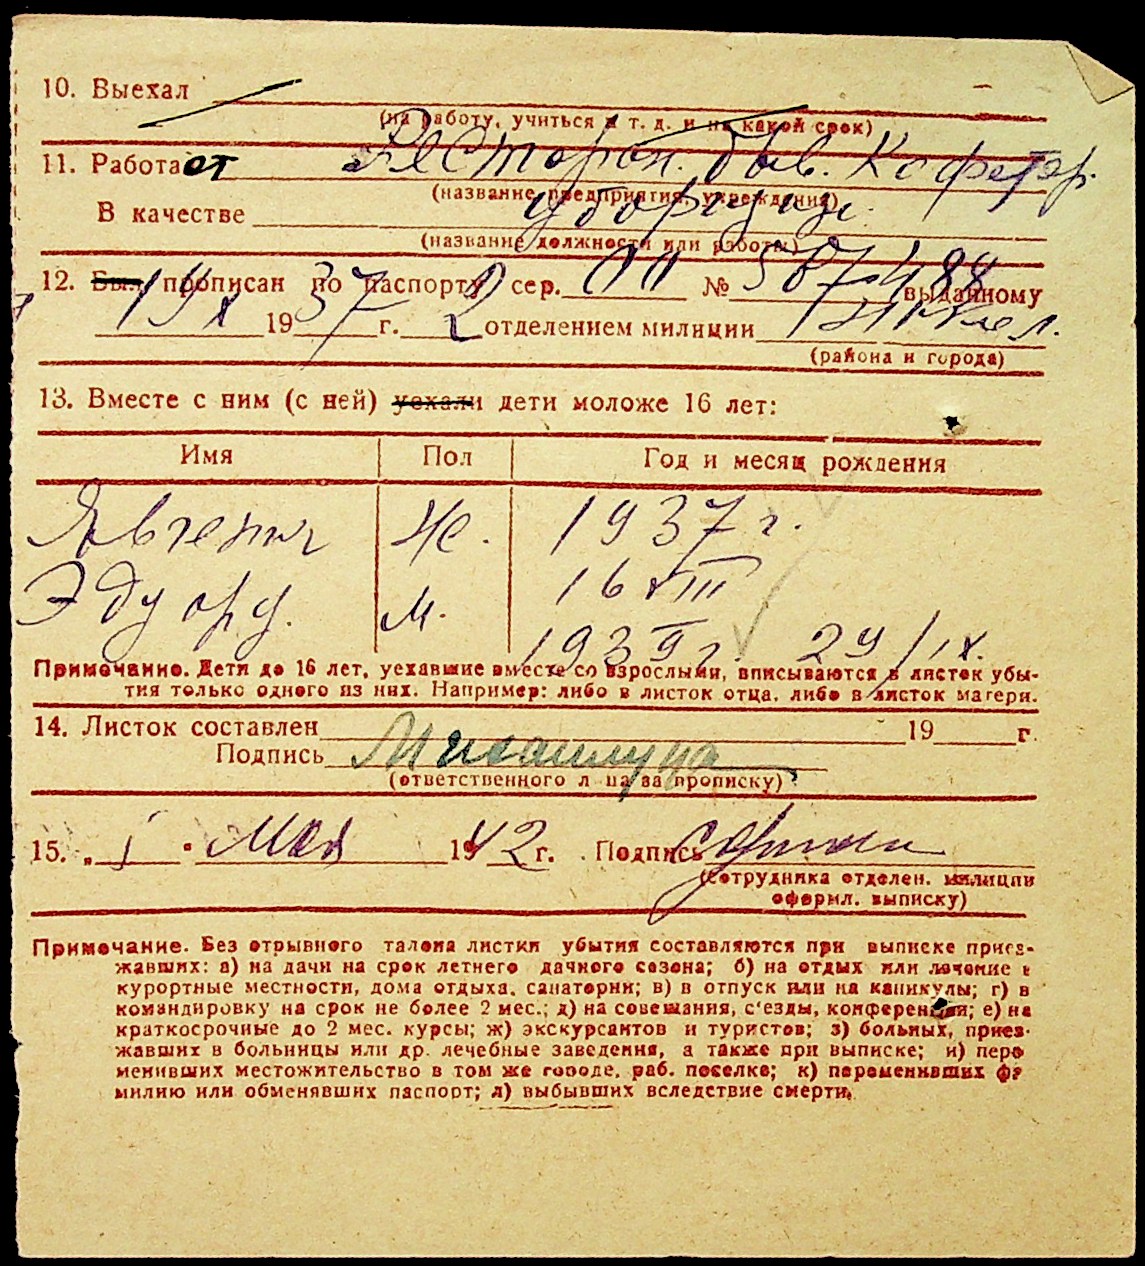 10. Выехал
(на работу, учиться и т. д. и на какой срок)
11. Работает Ресторан. быв. Кафетер.
(название предприятия, учреждения)
В качестве уборщицы.
(название должности или работы)
12. Был прописан по паспорту сер. № 587488 выданному
1937 г. 2 отделением милиции
(района и города)
13. Вместе с ним (с ней) уехали дети моложе 16 лет:
Имя Пол Год и месяц рождения
Явгения Ж. 1937 г.
16 VIII
Эдуард. м.
1939 г. 29/IX.
Примечание. Дети до 16 лет, уехавшие вместе со взрослыми, вписываются в листок убы-
тия только одного из них. Например: либо в листок отца, либо в листок матери.
14. Листок составлен 19 г.
Подпись
(ответственного лица за прописку)
15. „1" Мая 1942 г. Подпись
(сотрудника отделен. милиции
оформл. выписку)
Примечание. Без отрывного талона листки убытия составляются при выписке приез-
жавших: а) на дачи на срок летнего дачного сезона; б) на отдых или лечение в
курортные местности, дома отдыха, санатории; в) в отпуск или на каникулы; г) в
командировку на срок не более 2 мес.; д) на совещания, с'езды, конференции; е) на
краткосрочные до 2 мес. курсы; ж) экскурсантов и туристов; з) больных, приез-
жавших в больницы или др. лечебные заведения, а также при выписке; и) пере
менивших местожительство в том же городе, раб. поселке; к) переменивших фа
милию или обменявших паспорт; л) выбывших вследствие смерти.